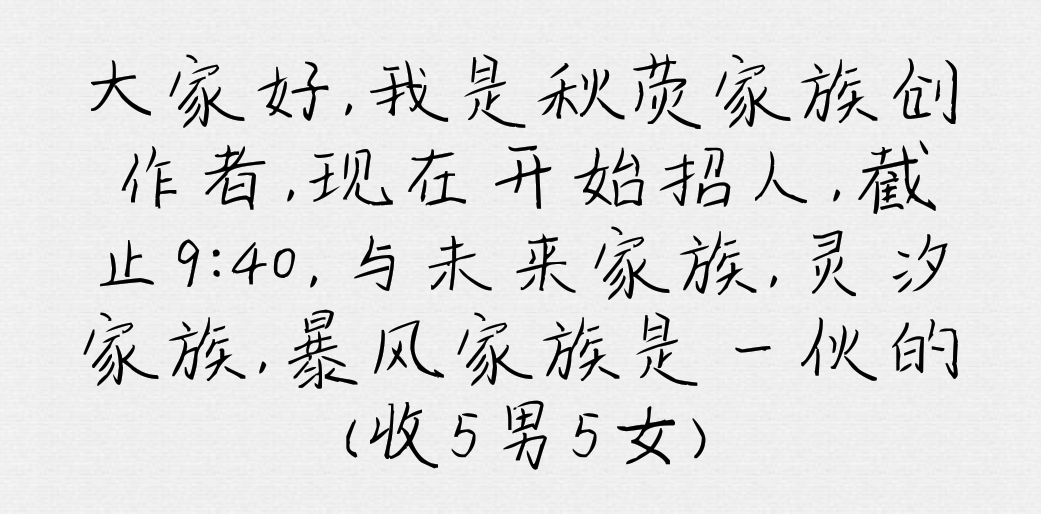 大家好,我是秋荧家族创
作者,现在开始招人,截
止9:40,与未来家族,灵汐
家族,暴风家族是一伙的
(收5男5女)